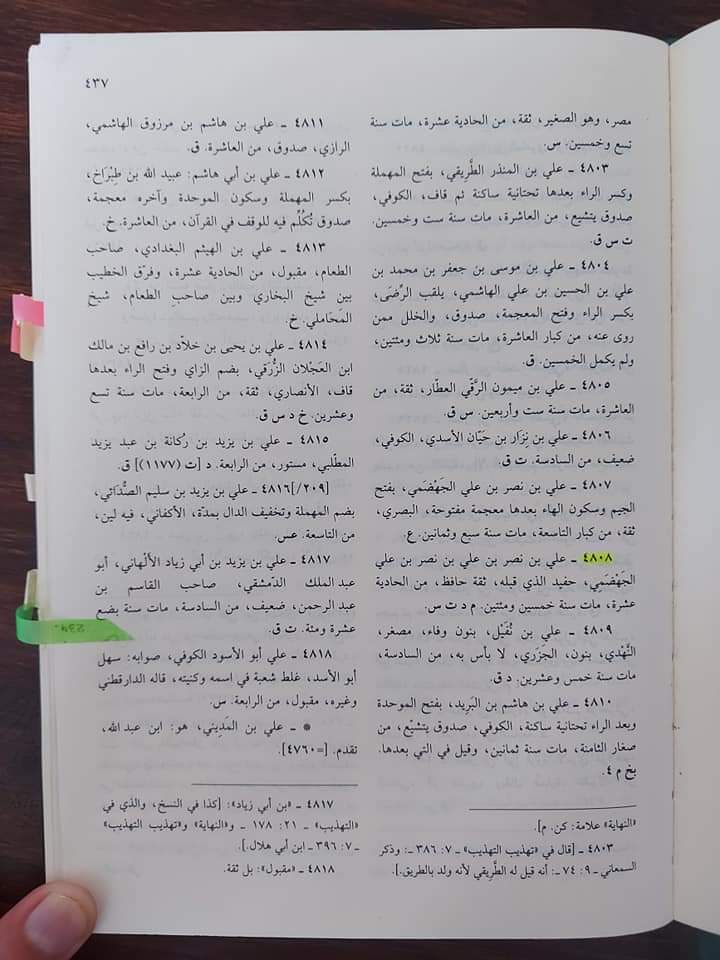 ٤٣٧
مصر، وهو الصغير، ثقة، من الحادية عشرة، مات سنة
تسع وخمسين. س.
٤٨٠٣ ـ علي بن المنذر الطَّرِيقي، بفتح المهملة
وكسر الراء بعدها تحتانية ساكنة ثم قاف، الكوفي،
صدوق يتشيع، من العاشرة، مات سنة ست وخمسين.
ت س ق.
٤٨٠٤ ـ علي بن موسى بن جعفر بن محمد بن
علي بن الحسين بن علي الهاشمي، يلقب الرِّضَى،
بكسر الراء وفتح المعجمة، صدوق، والخلل ممن
روى عنه، من كبار العاشرة، مات سنة ثلاث ومئتين،
ولم يكمل الخمسين. ق.
٤٨٠٥ ـ علي بن ميمون الرَّقِّي العطّار، ثقة، من
العاشرة، مات سنة ست وأربعين. س ق.
٤٨٠٦ ـ علي بن نِزَار بن حَيّان الأسدي، الكوفي،
ضعيف، من السادسة. ت ق.
٤٨٠٧ ـ علي بن نصر بن علي الجَهْضَمي، بفتح
الجيم وسكون الهاء بعدها معجمة مفتوحة، البصري،
ثقة، من كبار التاسعة، مات سنة سبع وثمانين. ع.
٤٨٠٨ ـ علي بن نصر بن علي بن نصر بن علي
الجَهْضَمِي، حفيد الذي قبله، ثقة حافظ، من الحادية
عشرة، مات سنة خمسين ومئتين. م د ت س.
٤٨٠٩ ـ علي بن نُفَيْل، بنون وفاء، مصغر،
النَّهْدي، بنون، الجَزَري، لا بأس به، من السادسة،
مات سنة خمس وعشرين. د ق.
٤٨١٠ ـ علي بن هاشم بن البَرِيد، بفتح الموحدة
وبعد الراء تحتانية ساكنة، الكوفي، صدوق يتشيّع، من
صغار الثامنة، مات سنة ثمانين، وقيل في التي بعدها.
بخ م ٤.
«النهاية» علامة: كن. م].
٤٨٠٣ ـ [قال في «تهذيب التهذيب» ـ ٧: ٣٨٦ ـ: وذكر
السمعاني ـ ٩: ٧٤ ـ: أنه قيل له الطَّرِيقي لأنه ولد بالطريق.].
٤٨١١ ـ علي بن هاشم بن مرزوق الهاشمي،
الرازي، صدوق، من العاشرة. ق.
٤٨١٢ ـ علي بن أبي هاشم: عبيد الله بن طِبْرَاخ،
بكسر المهملة وسكون الموحدة وآخره معجمة،
صدوق تُكُلِّم فيه للوقف في القرآن، من العاشرة. خ.
٤٨١٣ ـ علي بن الهيثم البغدادي، صاحب
الطعام، مقبول، من الحادية عشرة، وفرّق الخطيب
بين شيخ البخاري وبين صاحب الطعام، شيخ
المَحَاملي. خ.
٤٨١٤ ـ علي بن يحيى بن خلّاد بن رافع بن مالك
ابن العَجْلان الزُّرَقي، بضم الزاي وفتح الراء بعدها
قاف، الأنصاري، ثقة، من الرابعة، مات سنة تسع
وعشرين. خ د س ق.
٤٨١٥ ـ علي بن يزيد بن رُكانة بن عبد يزيد
المطّلبي، مستور، من الرابعة. د [ت (١١٧٧)] ق.
[٢٠٩/] ٤٨١٦ ـ علي بن يزيد بن سليم الصُّدَائي،
بضم المهملة وتخفيف الدال بمدّة، الأكفاني، فيه لين،
من التاسعة. عس.
٤٨١٧ ـ علي بن يزيد بن أبي زياد الألْهاني، أبو
عبد الملك الدّمشقي، صاحب القاسم بن
عبد الرحمن، ضعيف، من السادسة، مات سنة بضع
عشرة ومئة. ت ق.
٤٨١٨ ـ علي أبو الأسود الكوفي، صوابه: سهل
أبو الأسد، غلط شعبة في اسمه وكنيته، قاله الدارقطني
وغيره، مقبول، من الرابعة. س.
* ـ علي بن المَدِيني، هو: ابن عبد الله،
تقدم. [=٤٧٦٠].
٤٨١٧ ـ «بن أبي زياد»: [كذا في النسخ، والذي في
«التهذيب» ـ ٢١: ١٧٨ ـ و«النهاية» و«تهذيب التهذيب»
ـ ٧: ٣٩٦ ـ ابن أبي هلال.].
٤٨١٨ ـ «مقبول»: بل ثقة.
234